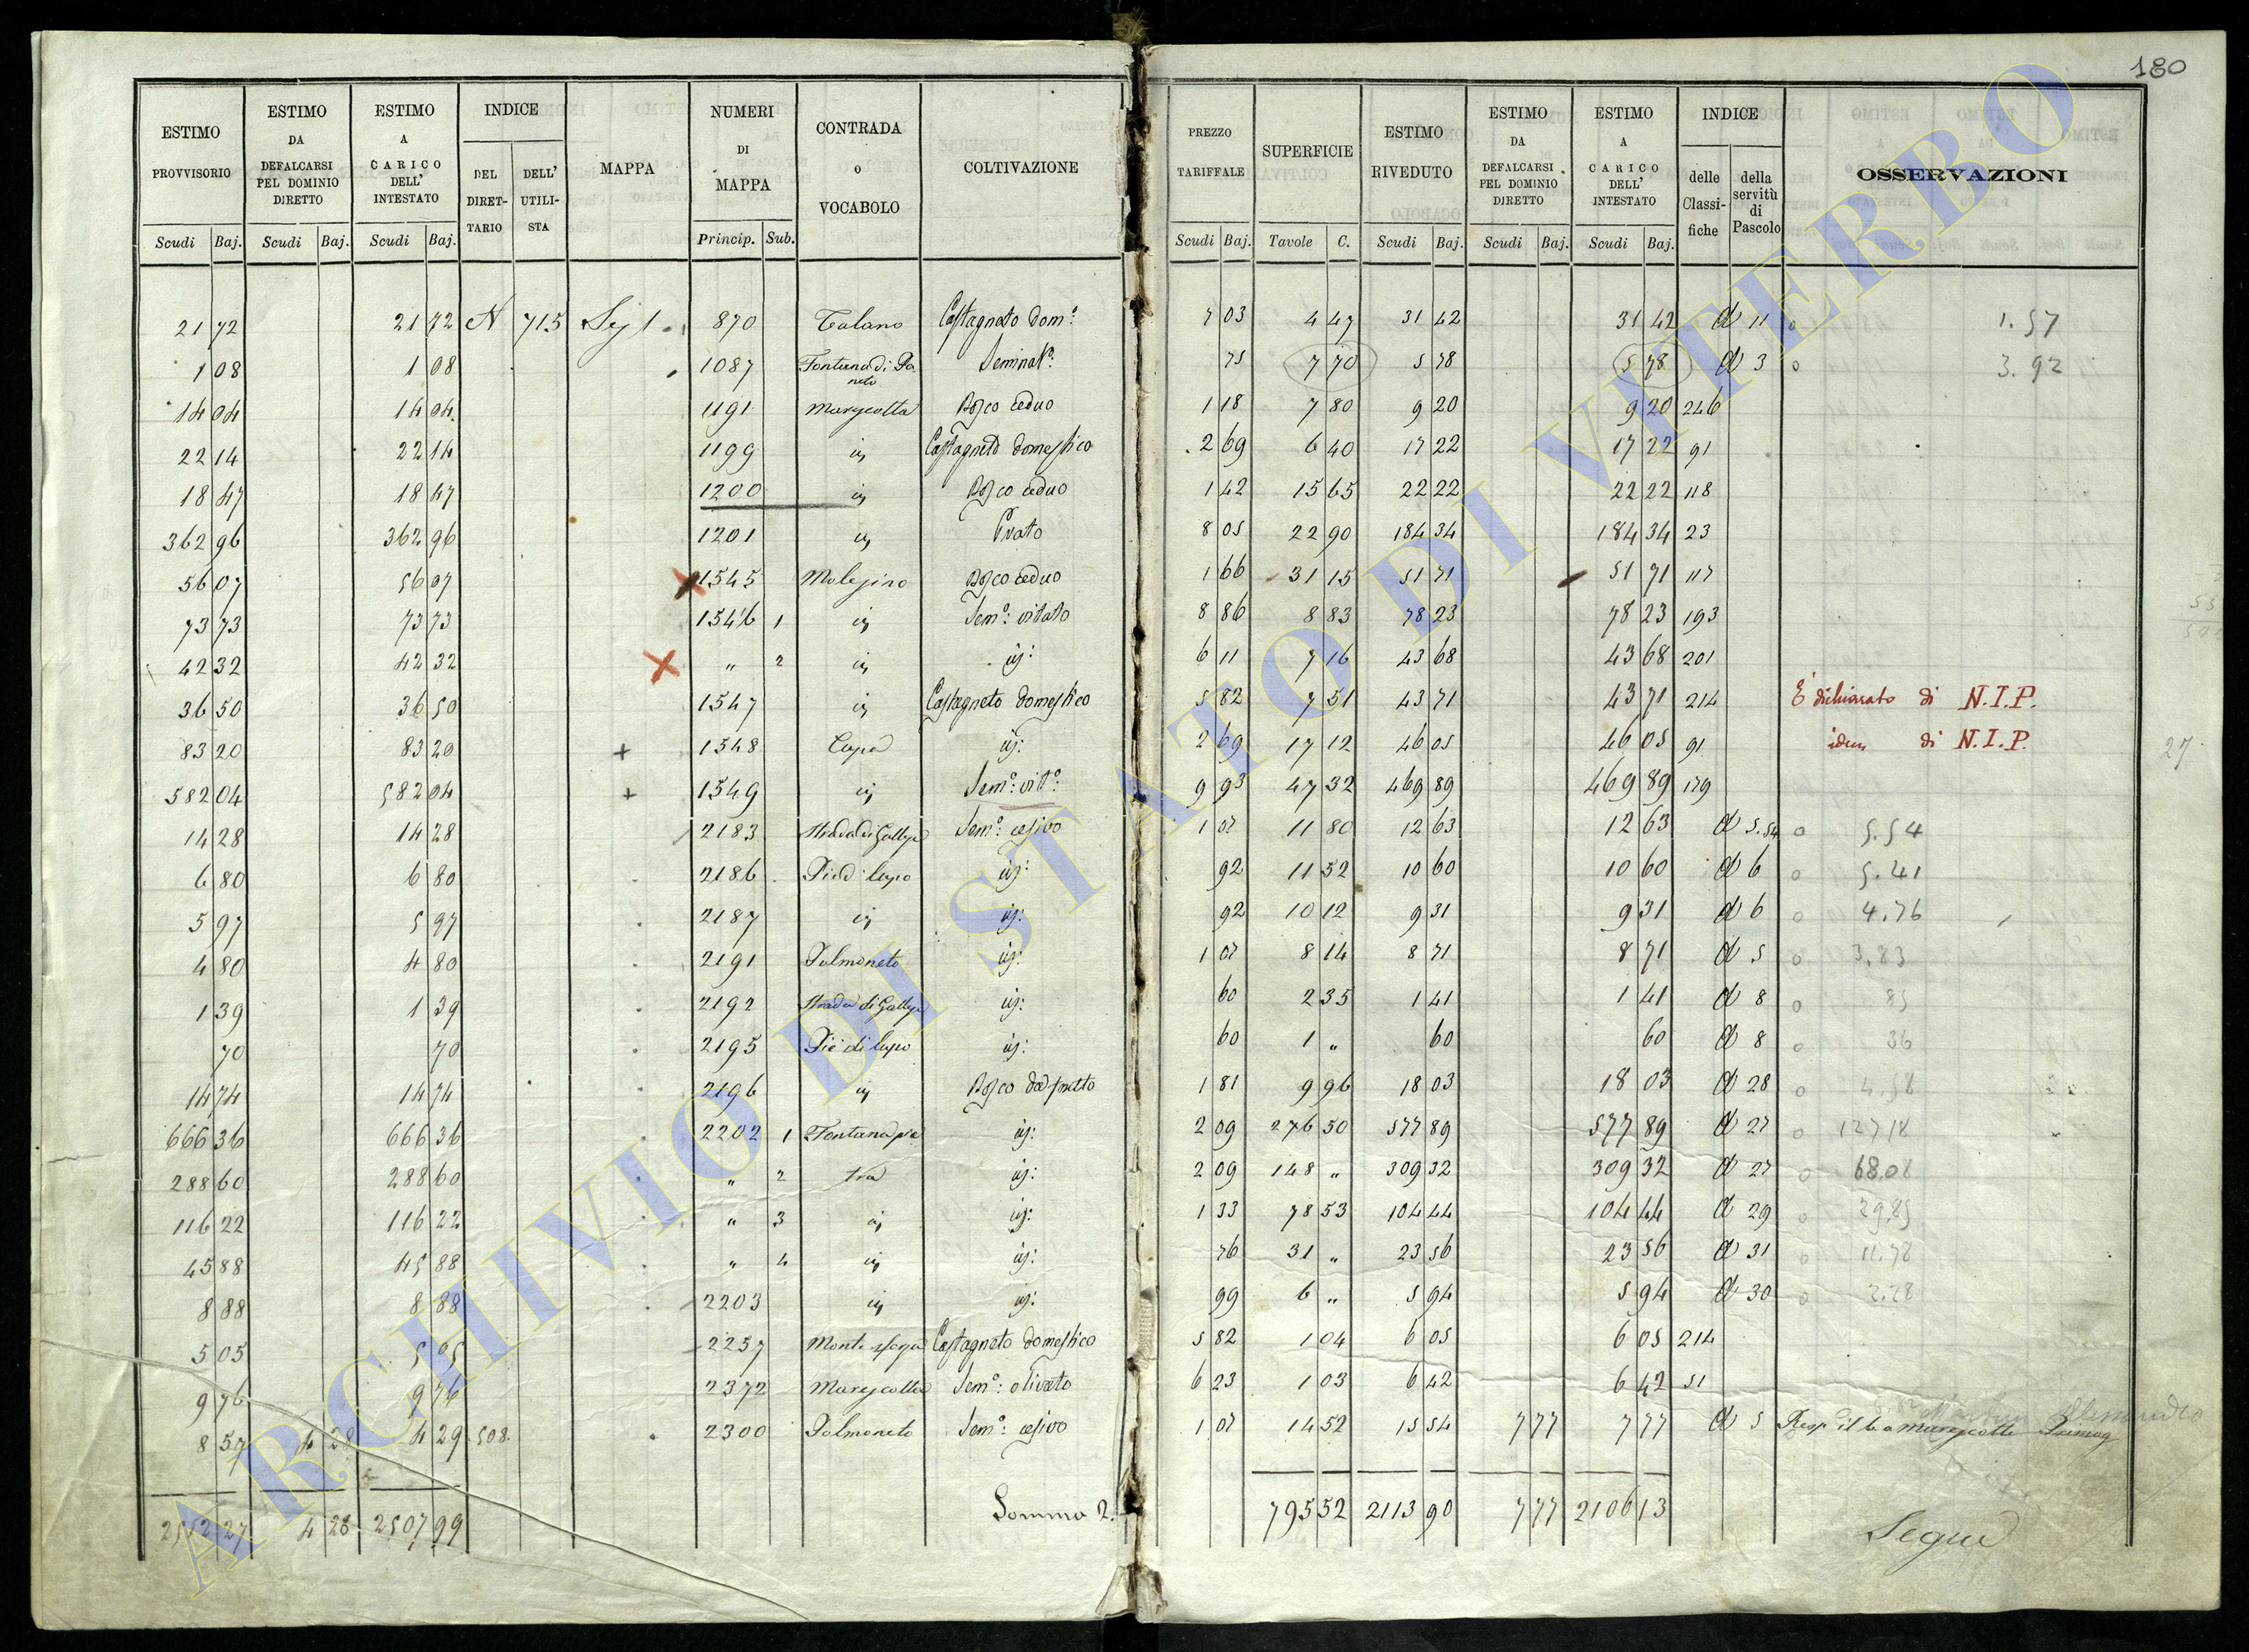 180
ESTIMO PROVVISORIO | ESTIMO DA DEFALCARSI PEL DOMINIO DIRETTO | ESTIMO A CARICO DELL' INTESTATO | INDICE DEL DIRETTARIO | DELL' UTILISTA | MAPPA | NUMERI DI MAPPA | CONTRADA o VOCABOLO | COLTIVAZIONE | PREZZO TARIFFALE | SUPERFICIE | ESTIMO RIVEDUTO | ESTIMO DA DEFALCARSI PEL DOMINIO DIRETTO | ESTIMO A CARICO DELL' INTESTATO | INDICE delle Classifiche | della servitù di Pascolo | OSSERVAZIONI
Scudi Baj. | Scudi Baj. | Scudi Baj. | Princip. Sub. | Scudi Baj. | Tavole C. | Scudi Baj. | Scudi Baj. | Scudi Baj.
21 72 | 21 72 | N 715 | 870 | Talano | Castagneto dom:º | 7 03 | 4 47 | 31 42 | 31 42 | 11 | 1.57
1 08 | 1 08 | 1087 | Fontana di | Seminat:º | 75 | 7 70 | 5 78 | 5 78 | 3 | 3.92
14 04 | 14 04 | 1191 | Margcotta | Bosco ceduo | 1 18 | 7 80 | 9 20 | 9 20 | 246
22 14 | 22 14 | 1199 | Castagneto domestico | 2 69 | 6 40 | 17 22 | 17 22 | 91
18 47 | 18 47 | 1200 | Bosco ceduo | 1 42 | 15 65 | 22 22 | 22 22 | 118
362 96 | 362 96 | 1201 | Prato | 8 05 | 22 90 | 184 34 | 184 34 | 23
56 07 | 56 07 | 1545 | Molesino | Bosco ceduo | 1 66 | 31 15 | 51 71 | 51 71 | 117
73 73 | 73 73 | 1546 1 | Sem:º vitato | 8 86 | 8 83 | 78 23 | 78 23 | 193
42 32 | 42 32 | " 2 | 6 11 | 7 16 | 43 68 | 43 68 | 201
36 50 | 36 50 | 1547 | Castagneto domestico | 5 82 | 7 51 | 43 71 | 43 71 | 214 | E' dichiarato di N.I.P.
83 20 | 83 20 | + | 1548 | 2 69 | 17 12 | 46 05 | 46 05 | 91 | idem di N.I.P. | 27
582 04 | 582 04 | + | 1549 | Sem:º vit:º | 9 93 | 47 32 | 469 89 | 469 89 | 179
14 28 | 14 28 | 2183 | Sem:º | 1 07 | 11 80 | 12 63 | 12 63 | 5.54 | 5.54
6 80 | 6 80 | 2186 | 92 | 11 52 | 10 60 | 10 60 | 6 | 5.41
5 97 | 5 97 | 2187 | 92 | 10 12 | 9 31 | 9 31 | 6 | 4.76
4 80 | 4 80 | 2191 | Palmoneto | 1 07 | 8 14 | 8 71 | 8 71 | 5 | 3.83
1 39 | 1 39 | 2192 | 60 | 2 35 | 1 41 | 1 41 | 8 | 85
70 | 70 | 2195 | Piè di lupo | 60 | 1 " | 60 | 60 | 8 | 36
14 74 | 14 74 | 2196 | Bosco da frutto | 1 81 | 9 96 | 18 03 | 18 03 | 28 | 4.58
666 36 | 666 36 | 2202 1 | 2 09 | 276 50 | 577 89 | 577 89 | 27 | 127.18
288 60 | 288 60 | " 2 | 2 09 | 148 " | 309 32 | 309 32 | 27 | 68.08
116 22 | 116 22 | " 3 | 1 33 | 78 53 | 104 44 | 104 44 | 29 | 29.85
45 88 | 45 88 | " 4 | 76 | 31 " | 23 56 | 23 56 | 31 | 11.78
8 88 | 8 88 | 2203 | 99 | 6 " | 5 94 | 5 94 | 30 | 2.28
5 05 | 5 05 | 2257 | Castagneto domestico | 5 82 | 1 04 | 6 05 | 6 05 | 214
9 76 | 9 76 | 2372 | Sem:º olivato | 6 23 | 1 03 | 6 42 | 6 42 | 51
8 57 | 4 28 | 4 29 | 508 | 2300 | Palmoneto | Sem:º | 1 07 | 14 52 | 15 54 | 7 77 | 7 77 | 5
2512 27 | 4 28 | 2507 99 | Somma 2. | 795 52 | 2113 90 | 7 77 | 2106 13 | Segue
ARCHIVIO DI STATO DI VITERBO